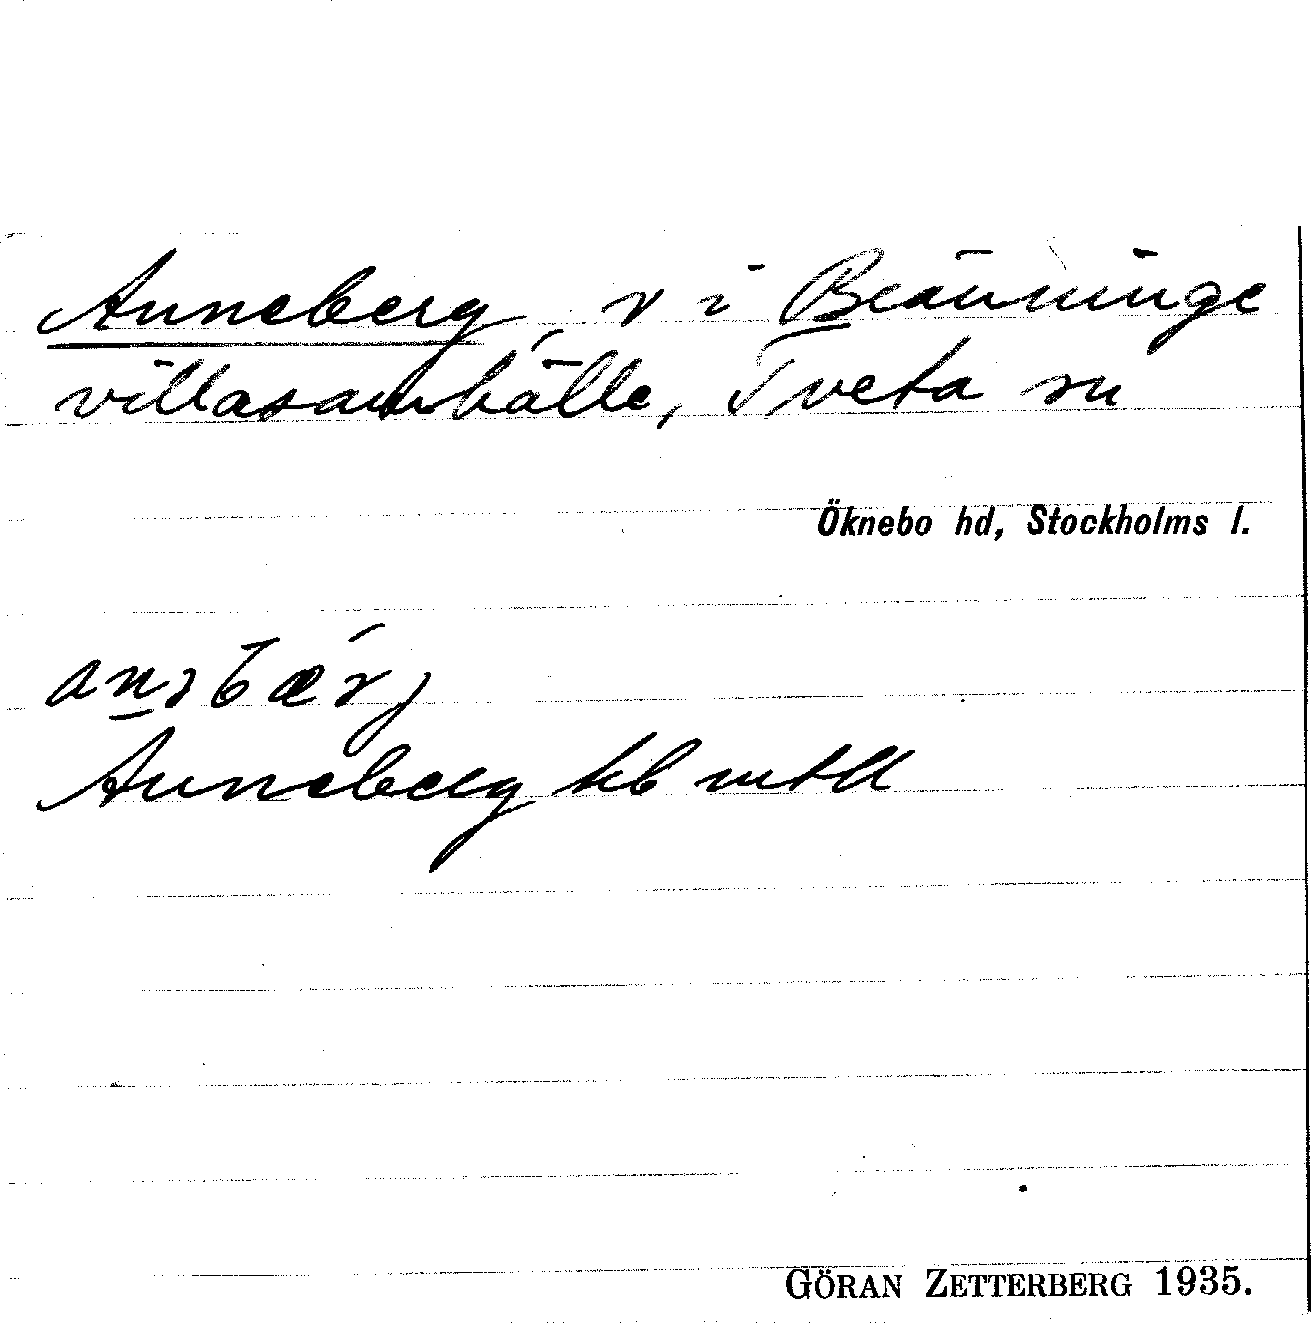 Anneberg, v i Bränninge
villasamhälle, Tveta sn
Öknebo hd, Stockholms l.
Anneberg
GÖRAN ZETTERBERG 1935.